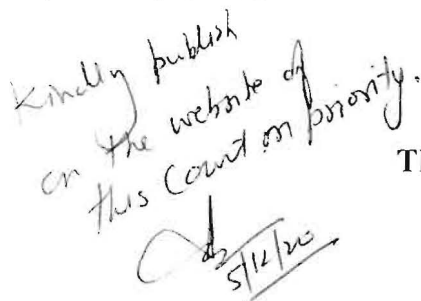 Kindly publish
on the website of
this Court on priority.
5/12/20